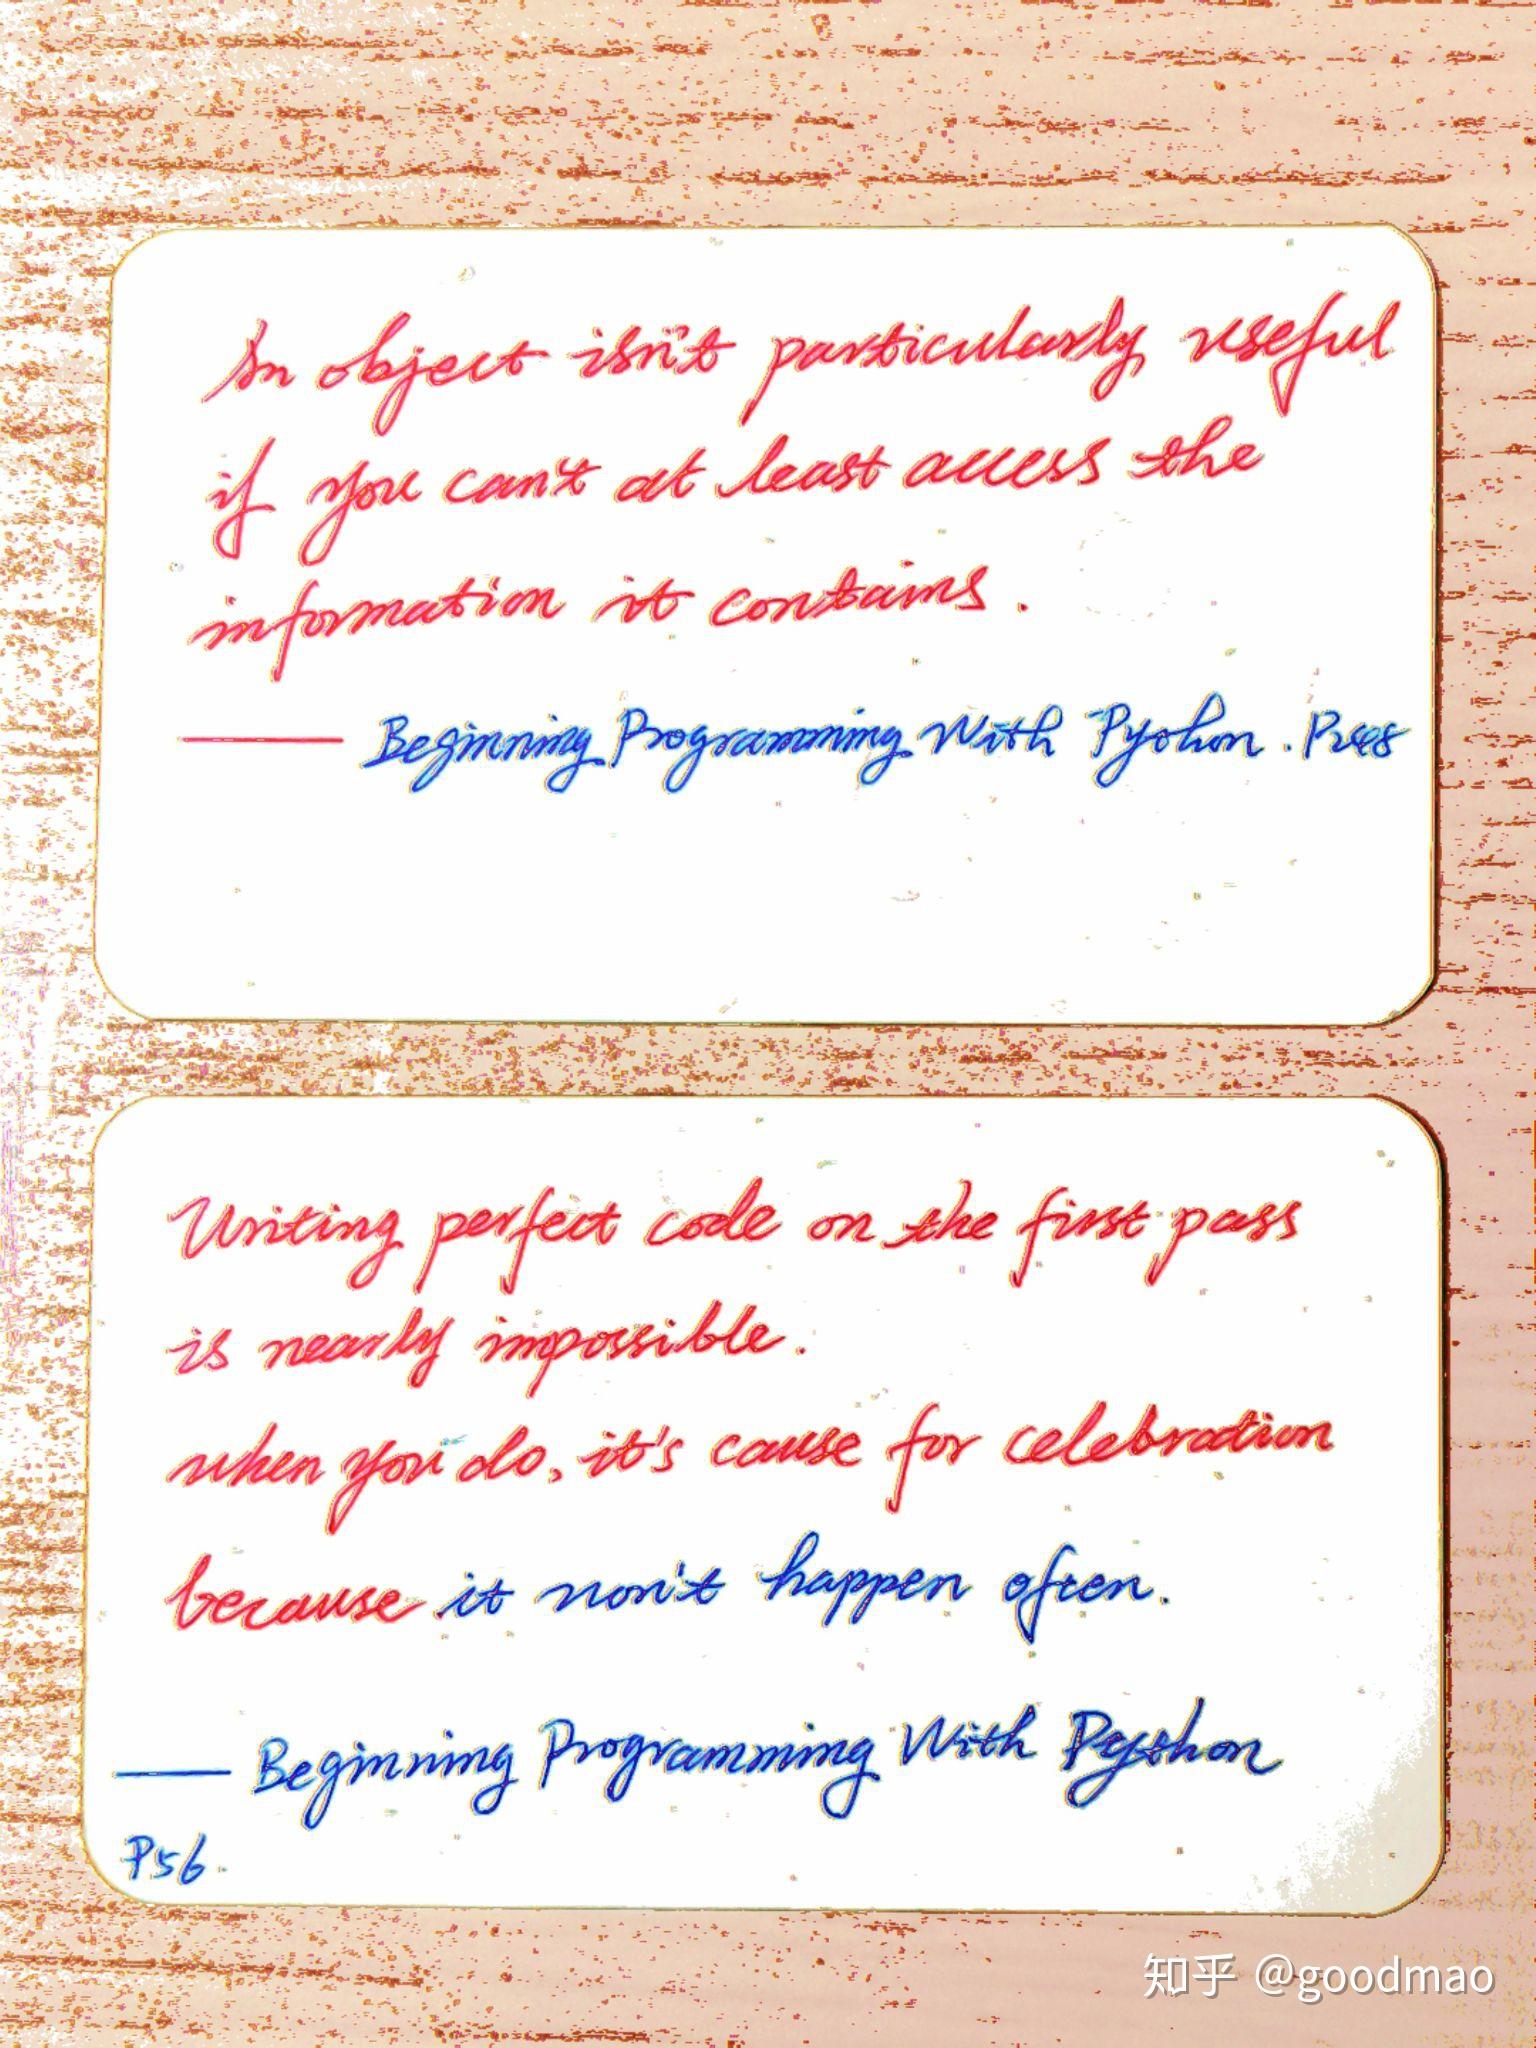 An object isn't particularly useful
if you can't at least access the
information it contains.
—— Beginning Programming With Pyohon.
Writing perfect code on the first pass
is nearly impossible.
when you do, it's cause for celebration
because it won't happen often.
— Beginning Programming With Python
P56.
知乎 @goodmao